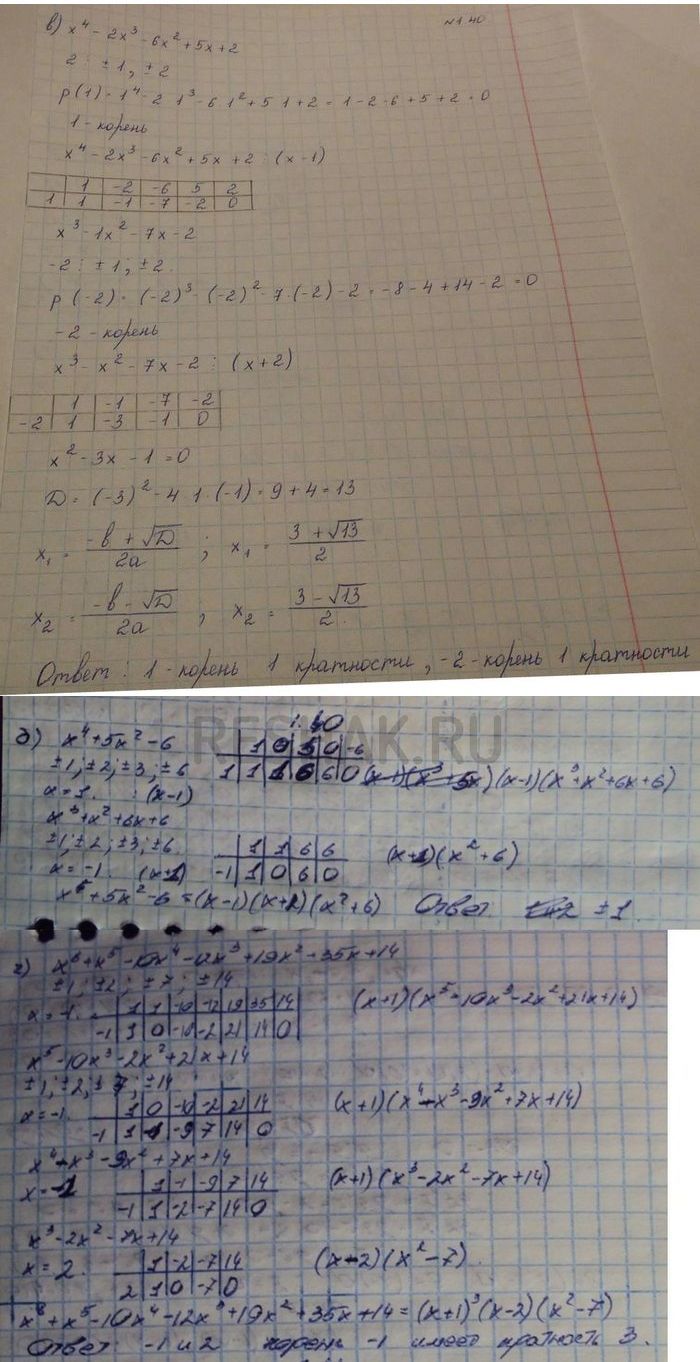 №1.40
в) x⁴ - 2x³ - 6x² + 5x + 2
2 : ±1, ±2
p(1) = 1⁴ - 2 1³ - 6 1² + 5 1 + 2 = 1 - 2 - 6 + 5 + 2 = 0
1 - корень
x⁴ - 2x³ - 6x² + 5x + 2 : (x - 1)
1 -2 -6 5 2
1 1 -1 -7 -2 0
x³ - 1x² - 7x - 2
-2 : ±1; ±2.
p(-2) = (-2)³ - (-2)² - 7·(-2) - 2 = -8 - 4 + 14 - 2 = 0
-2 - корень
x³ - x² - 7x - 2 : (x + 2)
1 -1 -7 -2
-2 1 -3 -1 0
x² - 3x - 1 = 0
D = (-3)² - 4 1·(-1) = 9 + 4 = 13
x₁ = (-b + √D)/2a ; x₁ = (3 + √13)/2
x₂ = (-b - √D)/2a ; x₂ = (3 - √13)/2.
Ответ: 1 - корень 1 кратности, -2 - корень 1 кратности
RESHAK.RU
1.40
д) x⁴ + 5x² - 6
1 0 5 0 -6
±1; ±2; ±3; ±6
1 1 1 6 6 0 (x-1)(x³+x²+6x+6)
x = 1. : (x-1)
x³ + x² + 6x + 6
±1; ±2; ±3; ±6
1 1 6 6
x = -1. (x+1)
-1 1 0 6 0
(x+1)(x² + 6)
x⁴ + 5x² - 6 = (x-1)(x+1)(x²+6) Ответ ±1.
г) x⁶ + x⁵ - 10x⁴ - 12x³ + 19x² + 35x + 14
±1; ±2; ±7; ±14
x = -1. 1 1 -10 -12 19 35 14
-1 1 0 -10 -2 21 14 0
(x+1)(x⁵ - 10x³ - 2x² + 21x + 14)
x⁵ - 10x³ - 2x² + 21x + 14
±1; ±2; ±7; ±14
x = -1. 1 0 -10 -2 21 14
-1 1 -1 -9 7 14 0
(x+1)(x⁴ - x³ - 9x² + 7x + 14)
x⁴ - x³ - 9x² + 7x + 14
x = -1 1 -1 -9 7 14
-1 1 -2 -7 14 0
(x+1)(x³ - 2x² - 7x + 14)
x³ - 2x² - 7x + 14
x = 2. 1 -2 -7 14
2 1 0 -7 0
(x-2)(x² - 7)
x⁶ + x⁵ - 10x⁴ - 12x³ + 19x² + 35x + 14 = (x+1)³(x-2)(x²-7)
Ответ: -1 и 2 корень -1 имеет кратность 3.